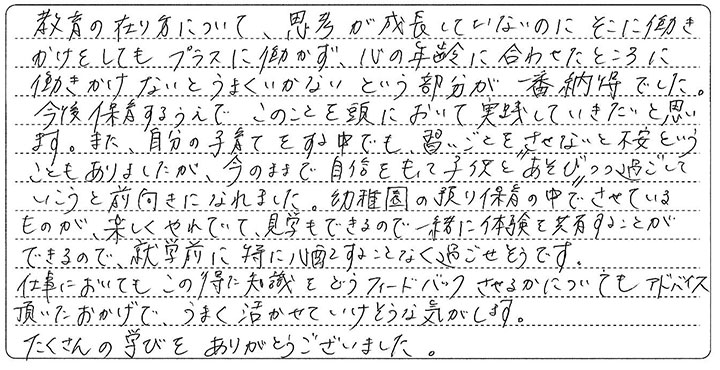 教育の在り方について、思考が成長していないのにそこに働き
かけをしてもプラスに働かず、心の年齢に合わせたところに
働きかけないとうまくいかないという部分が一番納得でした。
今後保育するうえでこのことを頭において実践していきたいと思い
ます。また、自分の子育てをする中でも、習いごとをさせないと不安という
こともありましたが、今のままで自信をもって子供と"あそび"つつ過ごして
いこうと前向きになれました。幼稚園の預り保育の中でさせている
ものが、楽しくやれていて、見学もできるので一緒に体験を共有することが
できるので、就学前に特に心配することなく過ごせそうです。
仕事においてもこの得た知識をどうフィードバックさせるかについてもアドバイス
頂いたおかげで、うまく活かせていけそうな気がします。
たくさんの学びをありがとうございました。